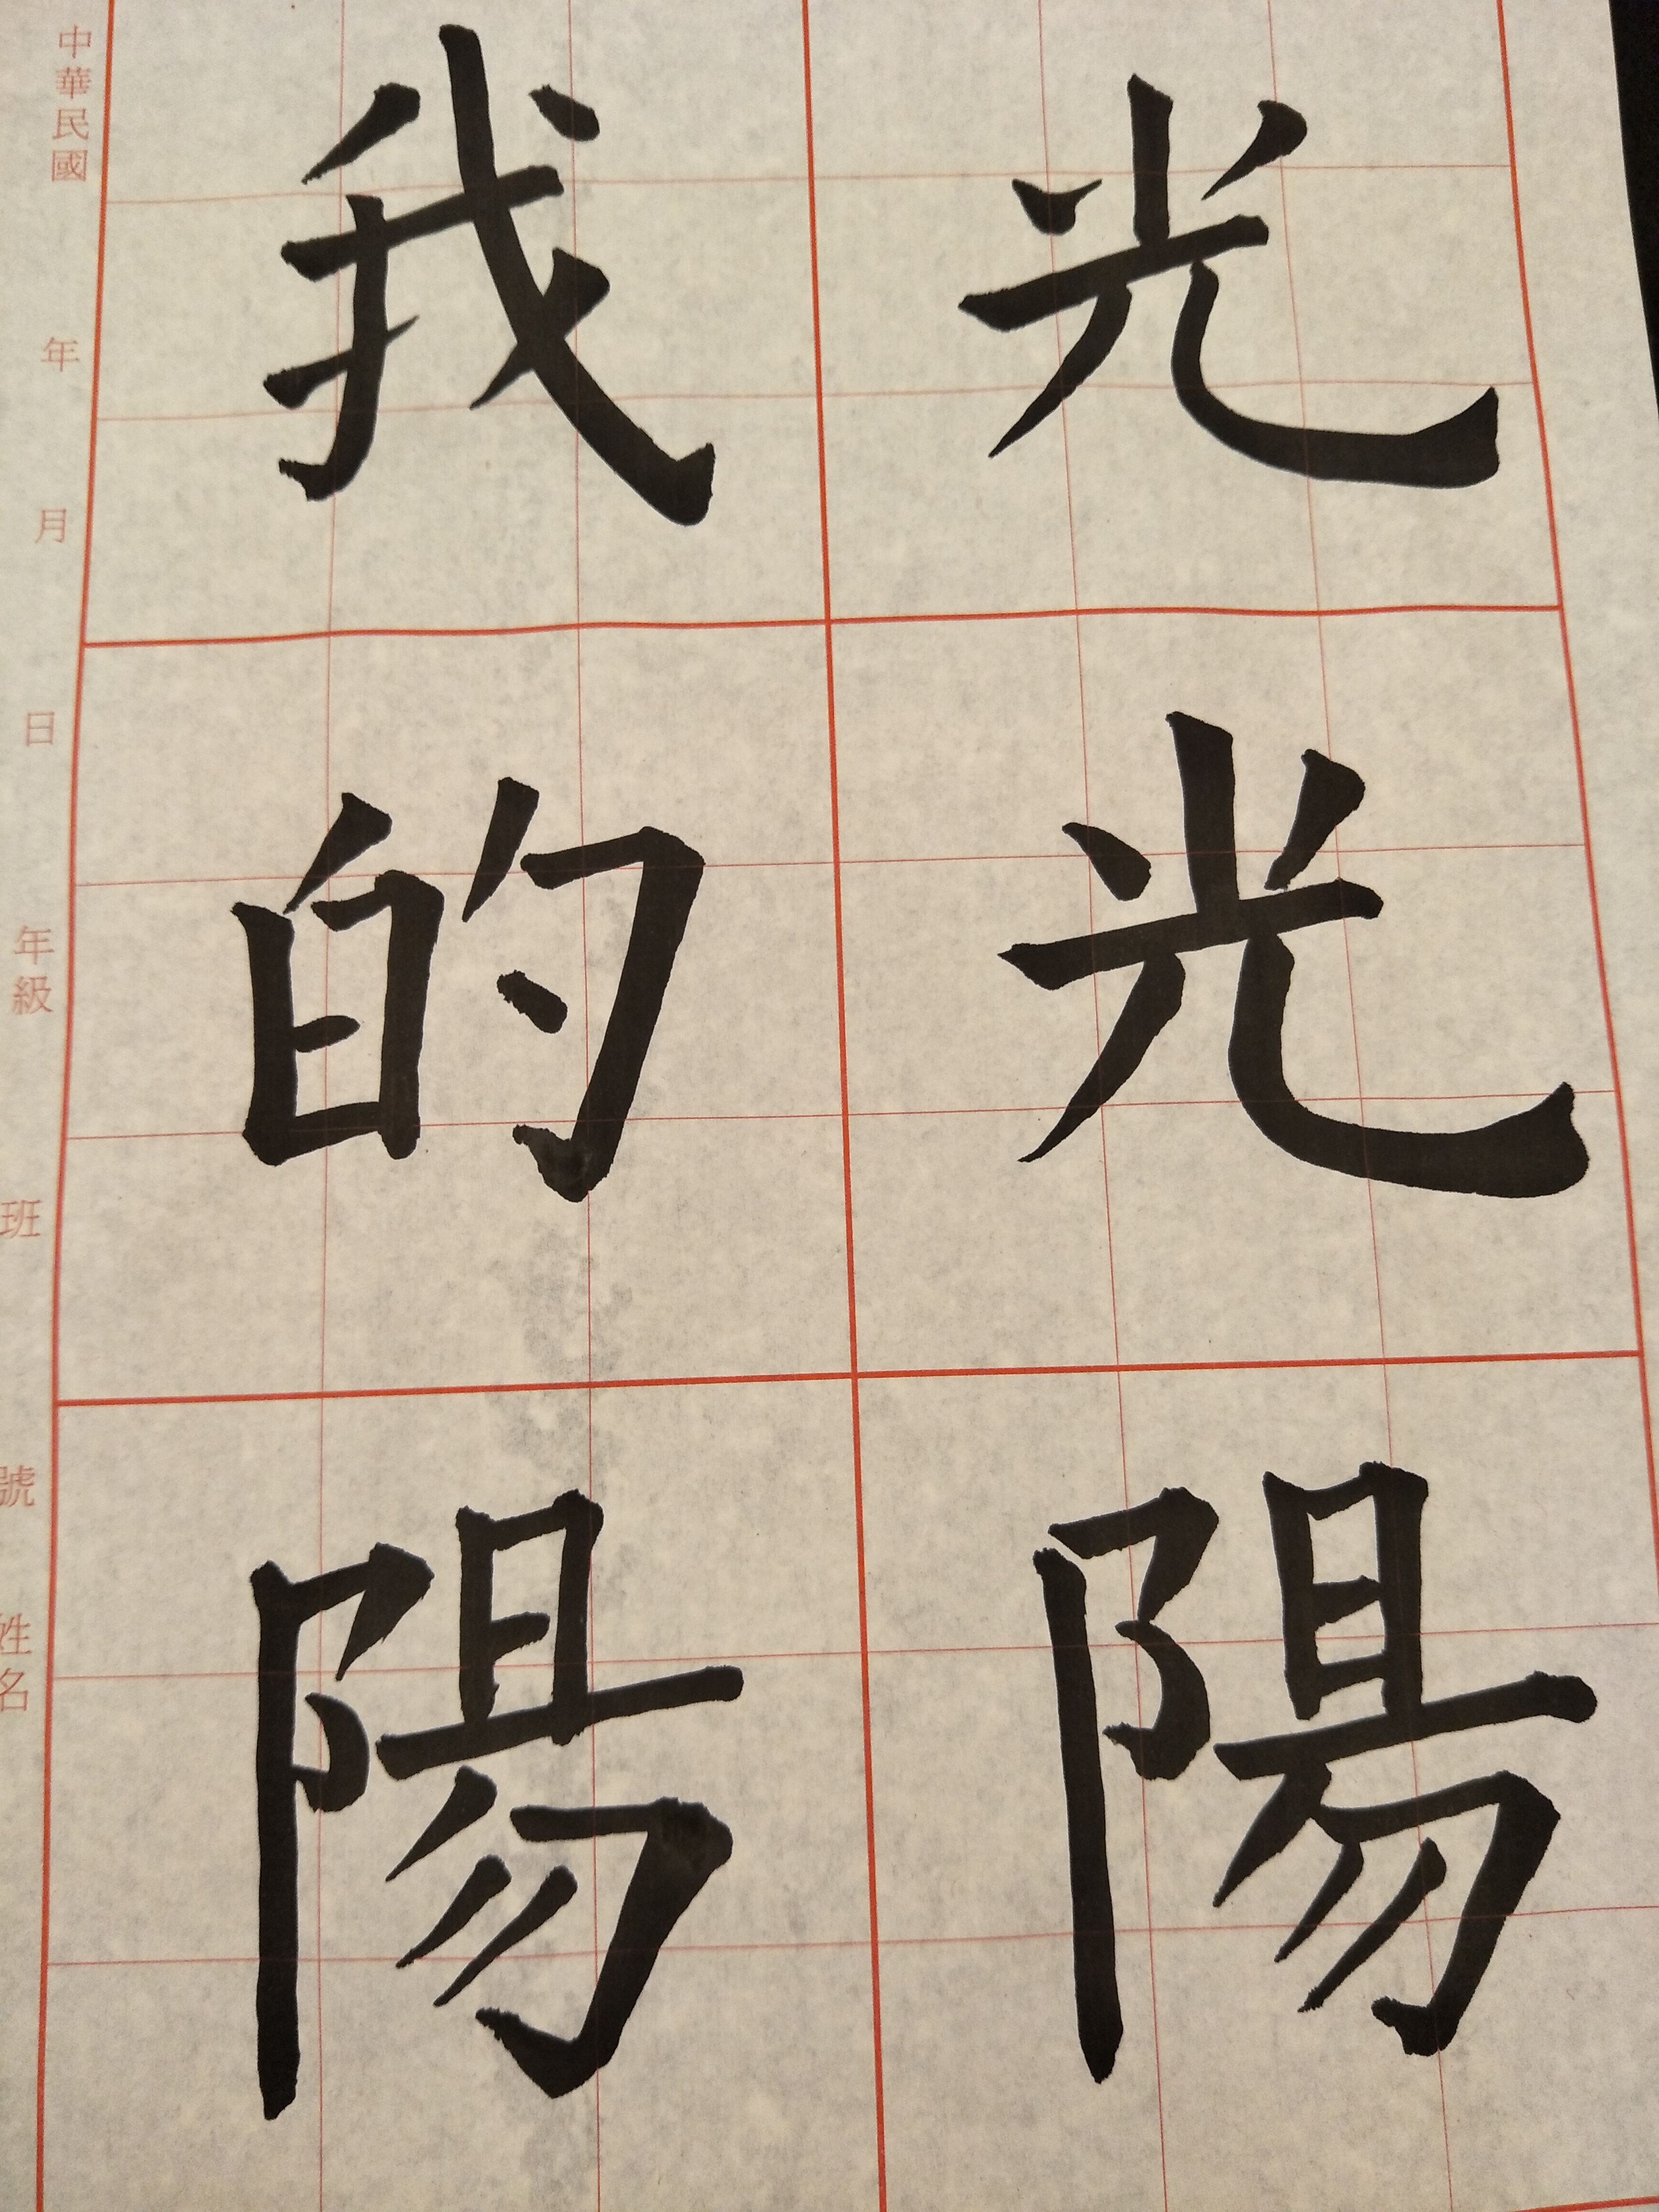 光光陽
我的陽
中華民國 年 月 日 年級 班 號 姓名